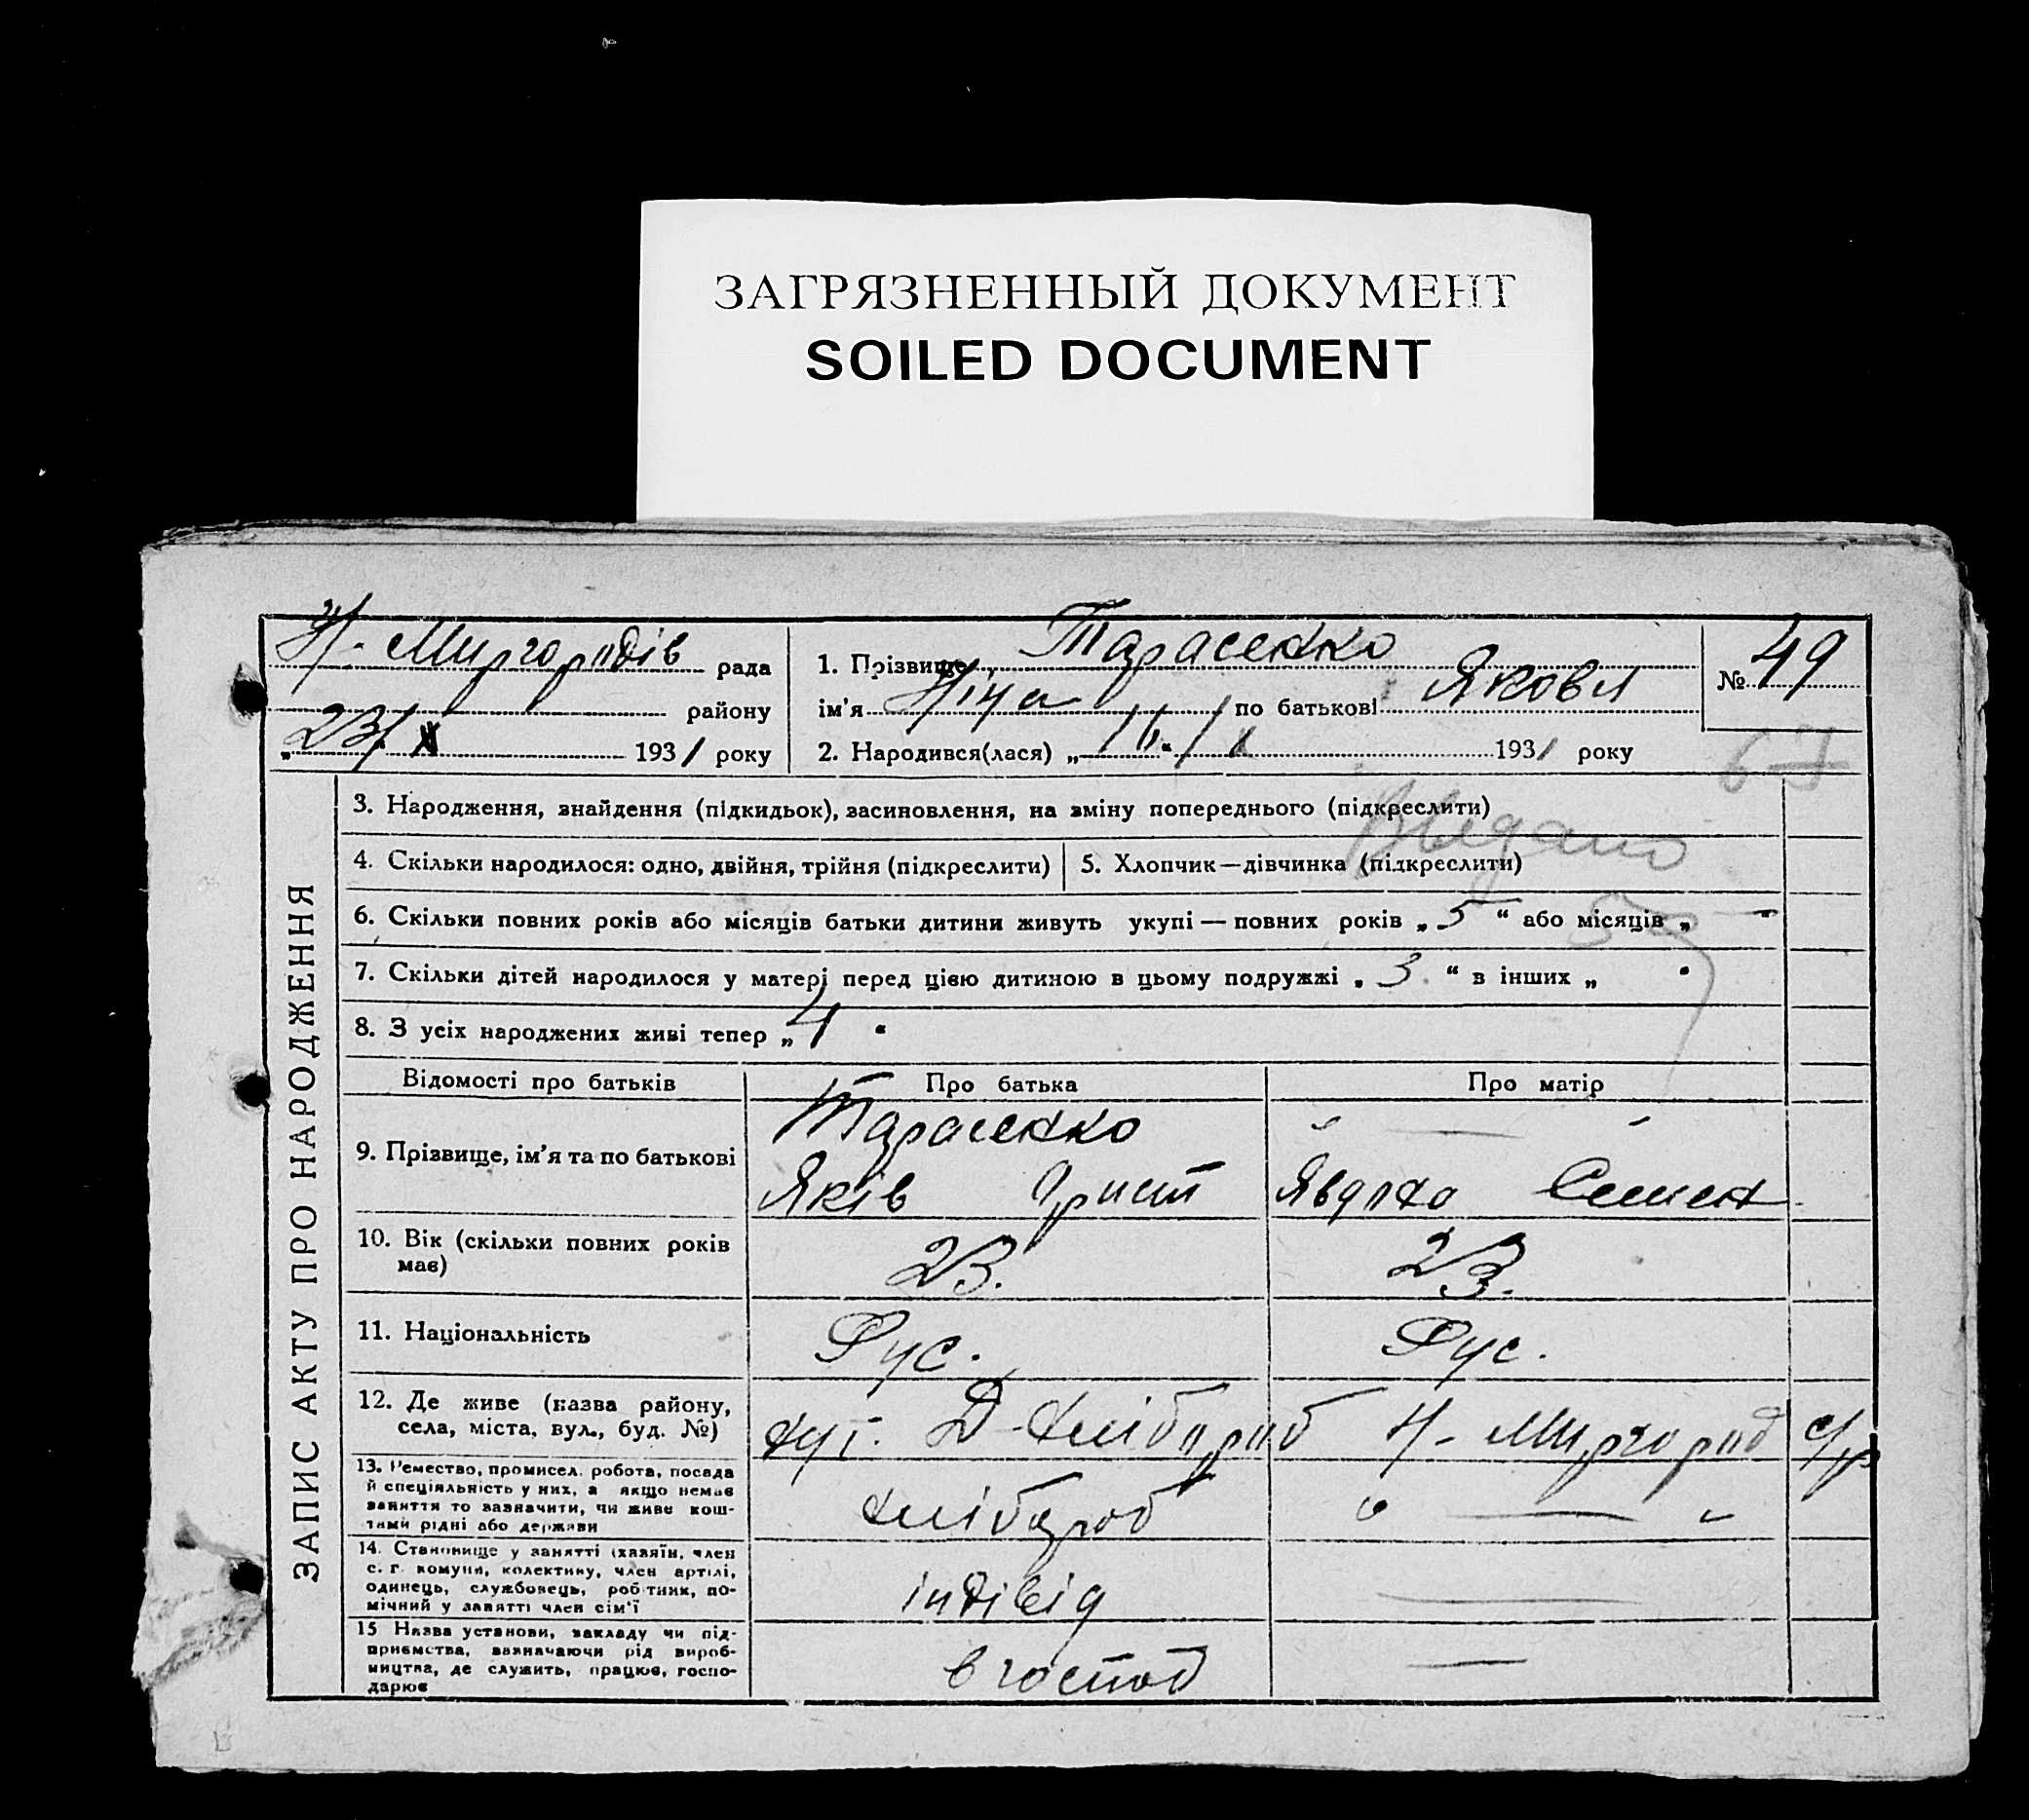 ЗАГРЯЗНЕННЫЙ ДОКУМЕНТ
SOILED DOCUMENT
Н-Миргородів рада
району
„23/X 1931 року
1. Прізвище Тарасенко
ім'я Ніна по батькові Яковл
2. Народився(лася) „11“/X 1931 року
№ 49
ЗАПИС АКТУ ПРО НАРОДЖЕННЯ
3. Народження, знайдення (підкидьок), засиновлення, на зміну попереднього (підкреслити)
4. Скільки народилося: одно, двійня, трійня (підкреслити)
5. Хлопчик—дівчинка (підкреслити)
6. Скільки повних років або місяців батьки дитини живуть укупі—повних років „5“ або місяців „—“
7. Скільки дітей народилося у матері перед цією дитиною в цьому подружжі „3“ в інших „ “
8. З усіх народжених живі тепер „4“
Відомості про батьків Про батька Про матір
9. Прізвище, ім'я та по батькові
Тарасенко „ — „
Яків Явдоха Семен
10. Вік (скільки повних років
має)
23. 23.
11. Національність
Рус. Рус.
12. Де живе (назва району,
села, міста, вул., буд. №)
Н-Миргород с/р
13. Ремество, промисел, робота, посада
й спеціяльність у них, а якщо немає
заняття то зазначити, чи живе кош-
тами рідні або держави
хлібороб „ — „
14. Становище у занятті (хазяїн, член
с. г. комуни, колективу, член артілі,
одинець, службовець, робітник, по-
мічний у занятті член сім'ї
індівід —
15 Назва установи, закладу чи під-
приємства, зазначаючи рід вироб-
ництва, де служить, працює, госпо-
дарює
в господ —